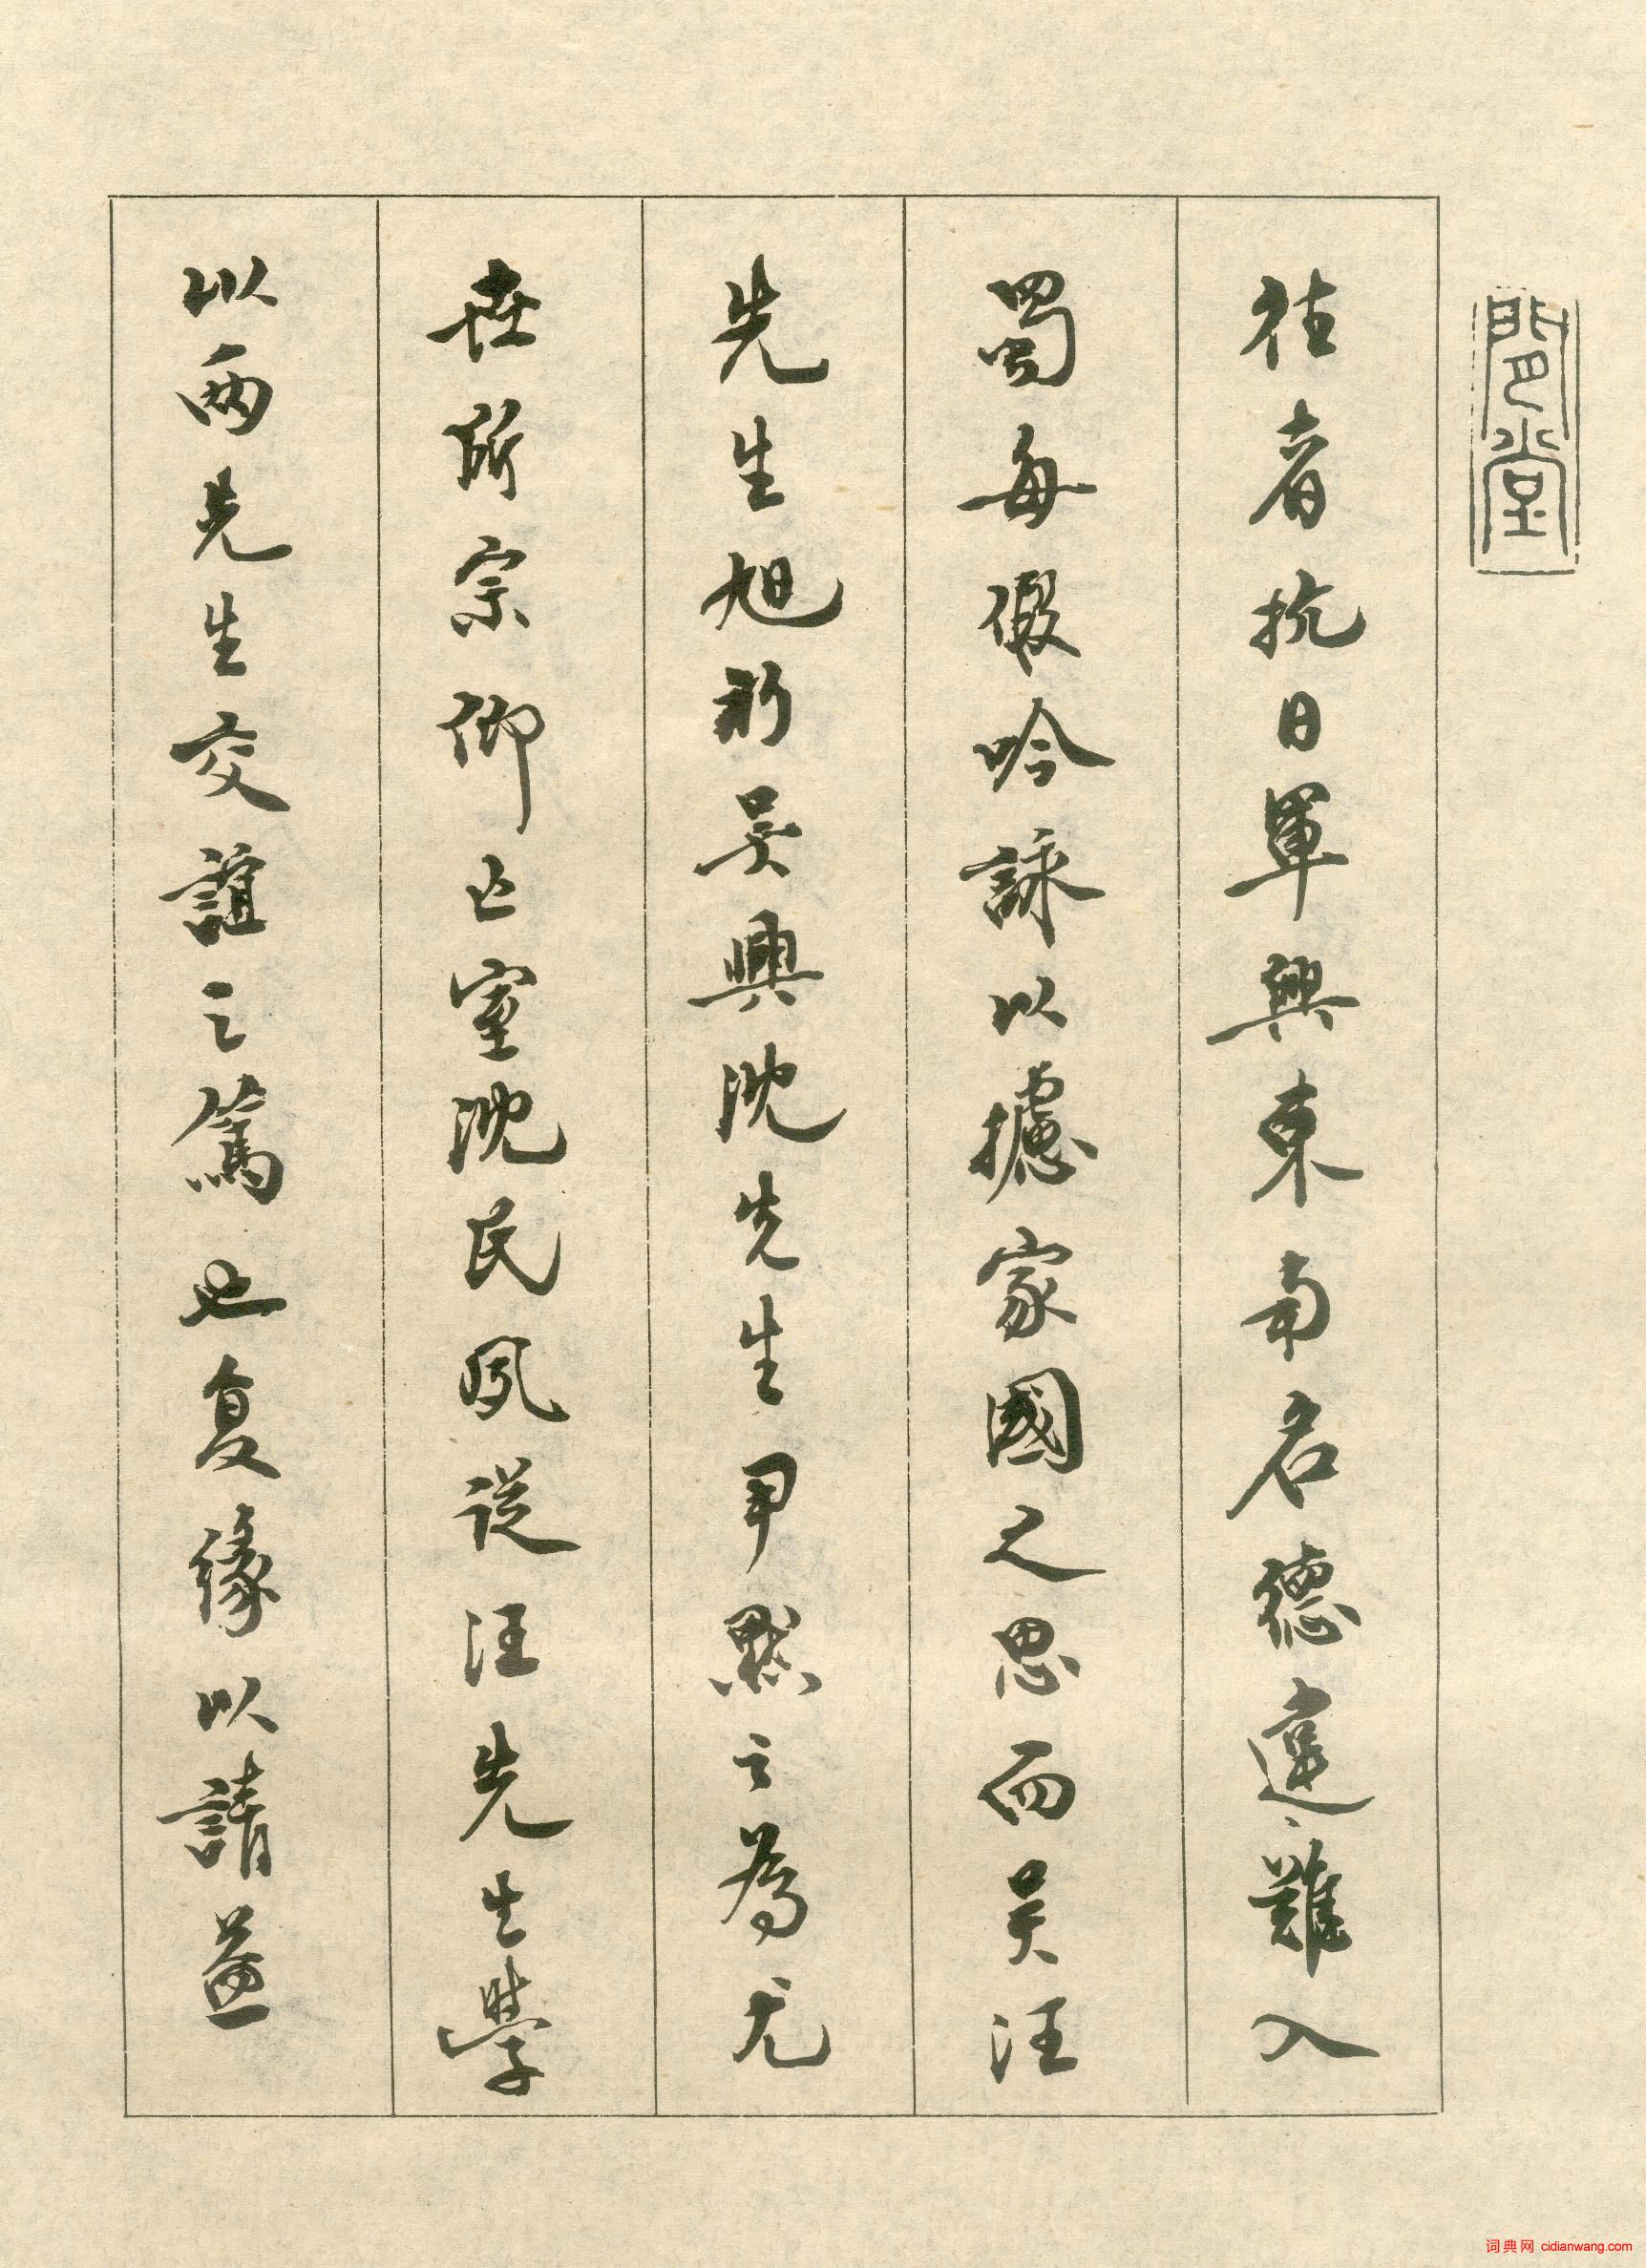 閒堂
往者抗日軍興東南名德違難入
蜀每假吟詠以攄家國之思而吴汪
先生旭初吴興沈先生尹默之為尤
世所宗仰亡室沈氏夙從汪先生學
以两先生交誼之篤也复緣以請益
词典网 cidianwang.com